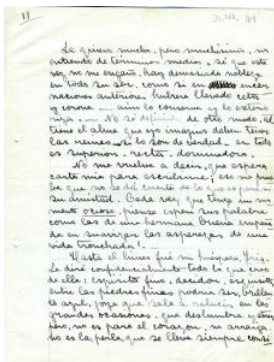 11
Le quiero mucho, pero muchísimo, no
entiendo de términos medios, sé que esta
vez no me engaño, hay demasiada nobleza
en todo su ser, como si en encar
naciones anteriores, hubiera llevado cetro
y corona — aún lo conserva y lo exterio
riza. — No sé definirle de otro modo, él
tiene el alma que yo imagino deben tener
las reinas si lo son de verdad. en todo
es superior, recta, dominadora.
No me vuelva a decir, que espera
carta mía para escribirme; eso me prue
ba que no se dá cuenta de lo que es para
su amistad. Cada vez que tenga un mo
mento ocioso, piense espera sus palabras
como las de una hermana buena empeña
da en suavizar las asperezas de una
vida tronchada!
Hasta el lunes fué mi huéspeda Iris.
Le diré confidencialmente todo lo que creo
de ella: espíritu fino, decidor, exquisito,
entre las piedras finas podría ser, brillan
te azul, joya que sale a relucir en las
grandes ocasiones, que deslumbra y atrae,
pero, no es para el corazón, no arraiga,
no es la perla que se lleva siempre consi